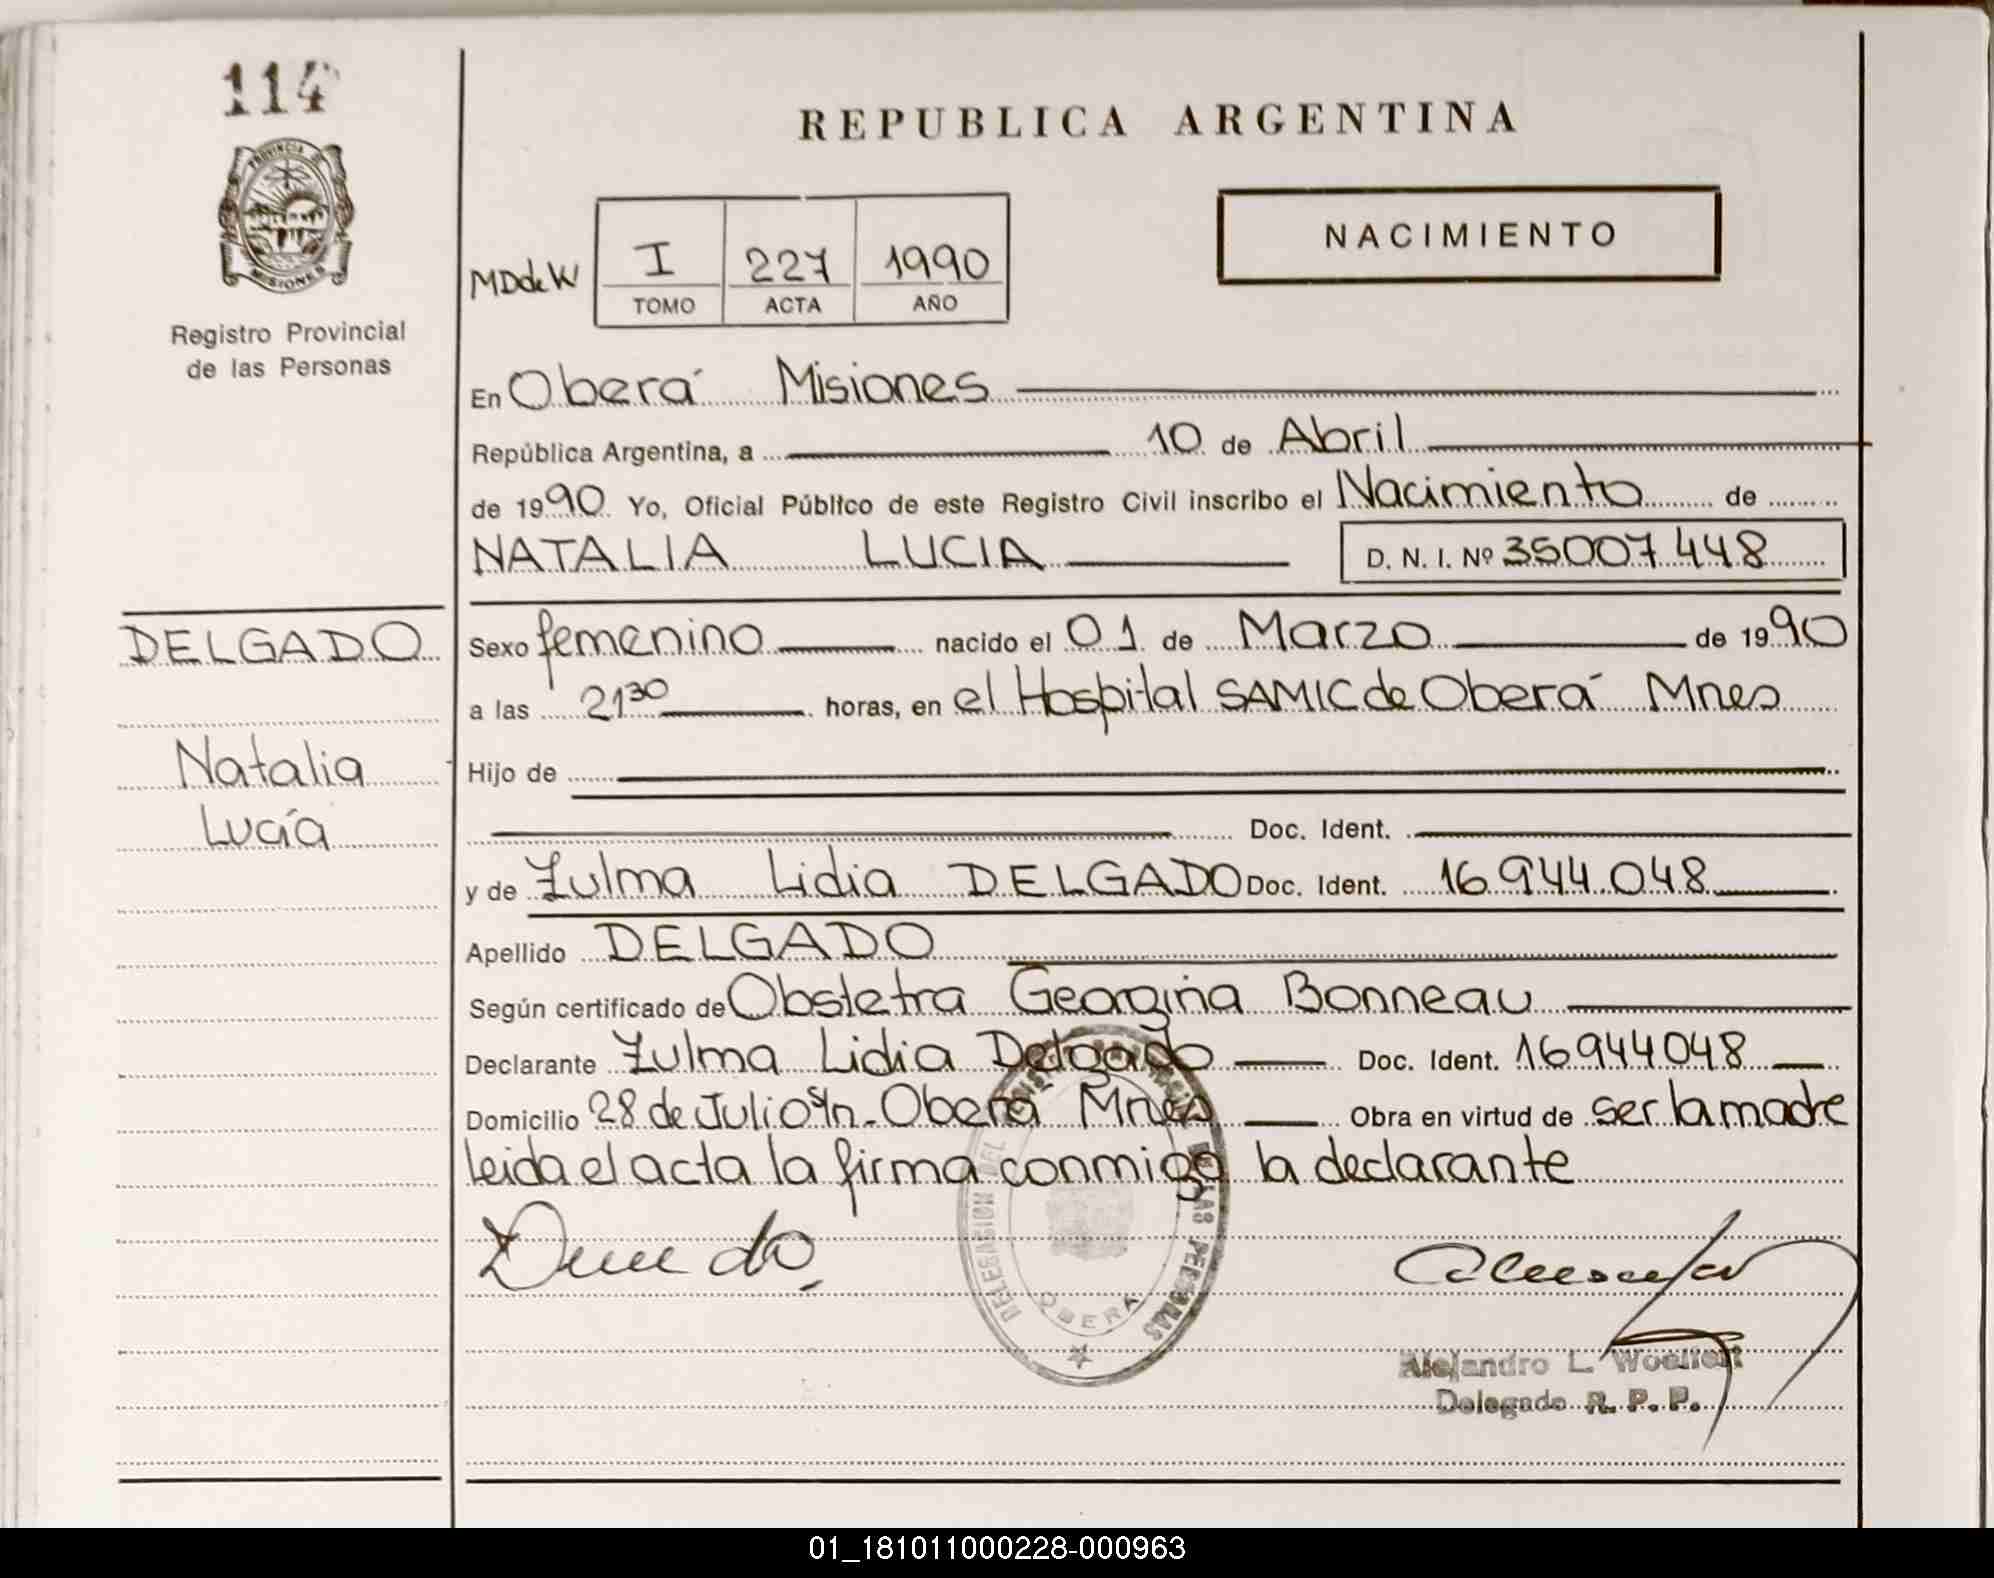 114
PROVINCIA DE
MISIONES
Registro Provincial
de las Personas
REPUBLICA ARGENTINA
NACIMIENTO
MDdeW
I 227 1990
TOMO ACTA AÑO
En Oberá Misiones
República Argentina, a 10 de Abril
de 1990 Yo, Oficial Público de este Registro Civil inscribo el Nacimiento de
NATALIA LUCIA D. N. I. Nº 35007448
DELGADO
Natalia
Lucía
Sexo femenino nacido el 01 de Marzo de 1990
a las 21 30 horas, en el Hospital SAMIC de Oberá Mnes
Hijo de
Doc. Ident.
y de Zulma Lidia DELGADO Doc. Ident. 16944.048
Apellido DELGADO
Según certificado de Obstetra Georgina Bonneau
Declarante Zulma Lidia Delgado Doc. Ident. 16944048
Domicilio 28 de Julio s/n. Oberá Mnes Obra en virtud de ser la madre
leida el acta la firma conmigo la declarante
DELEGASION DEL DE LAS PERSONAS
OBERA
Alejandro L.
Delegado R. P. P.
01_181011000228-000963